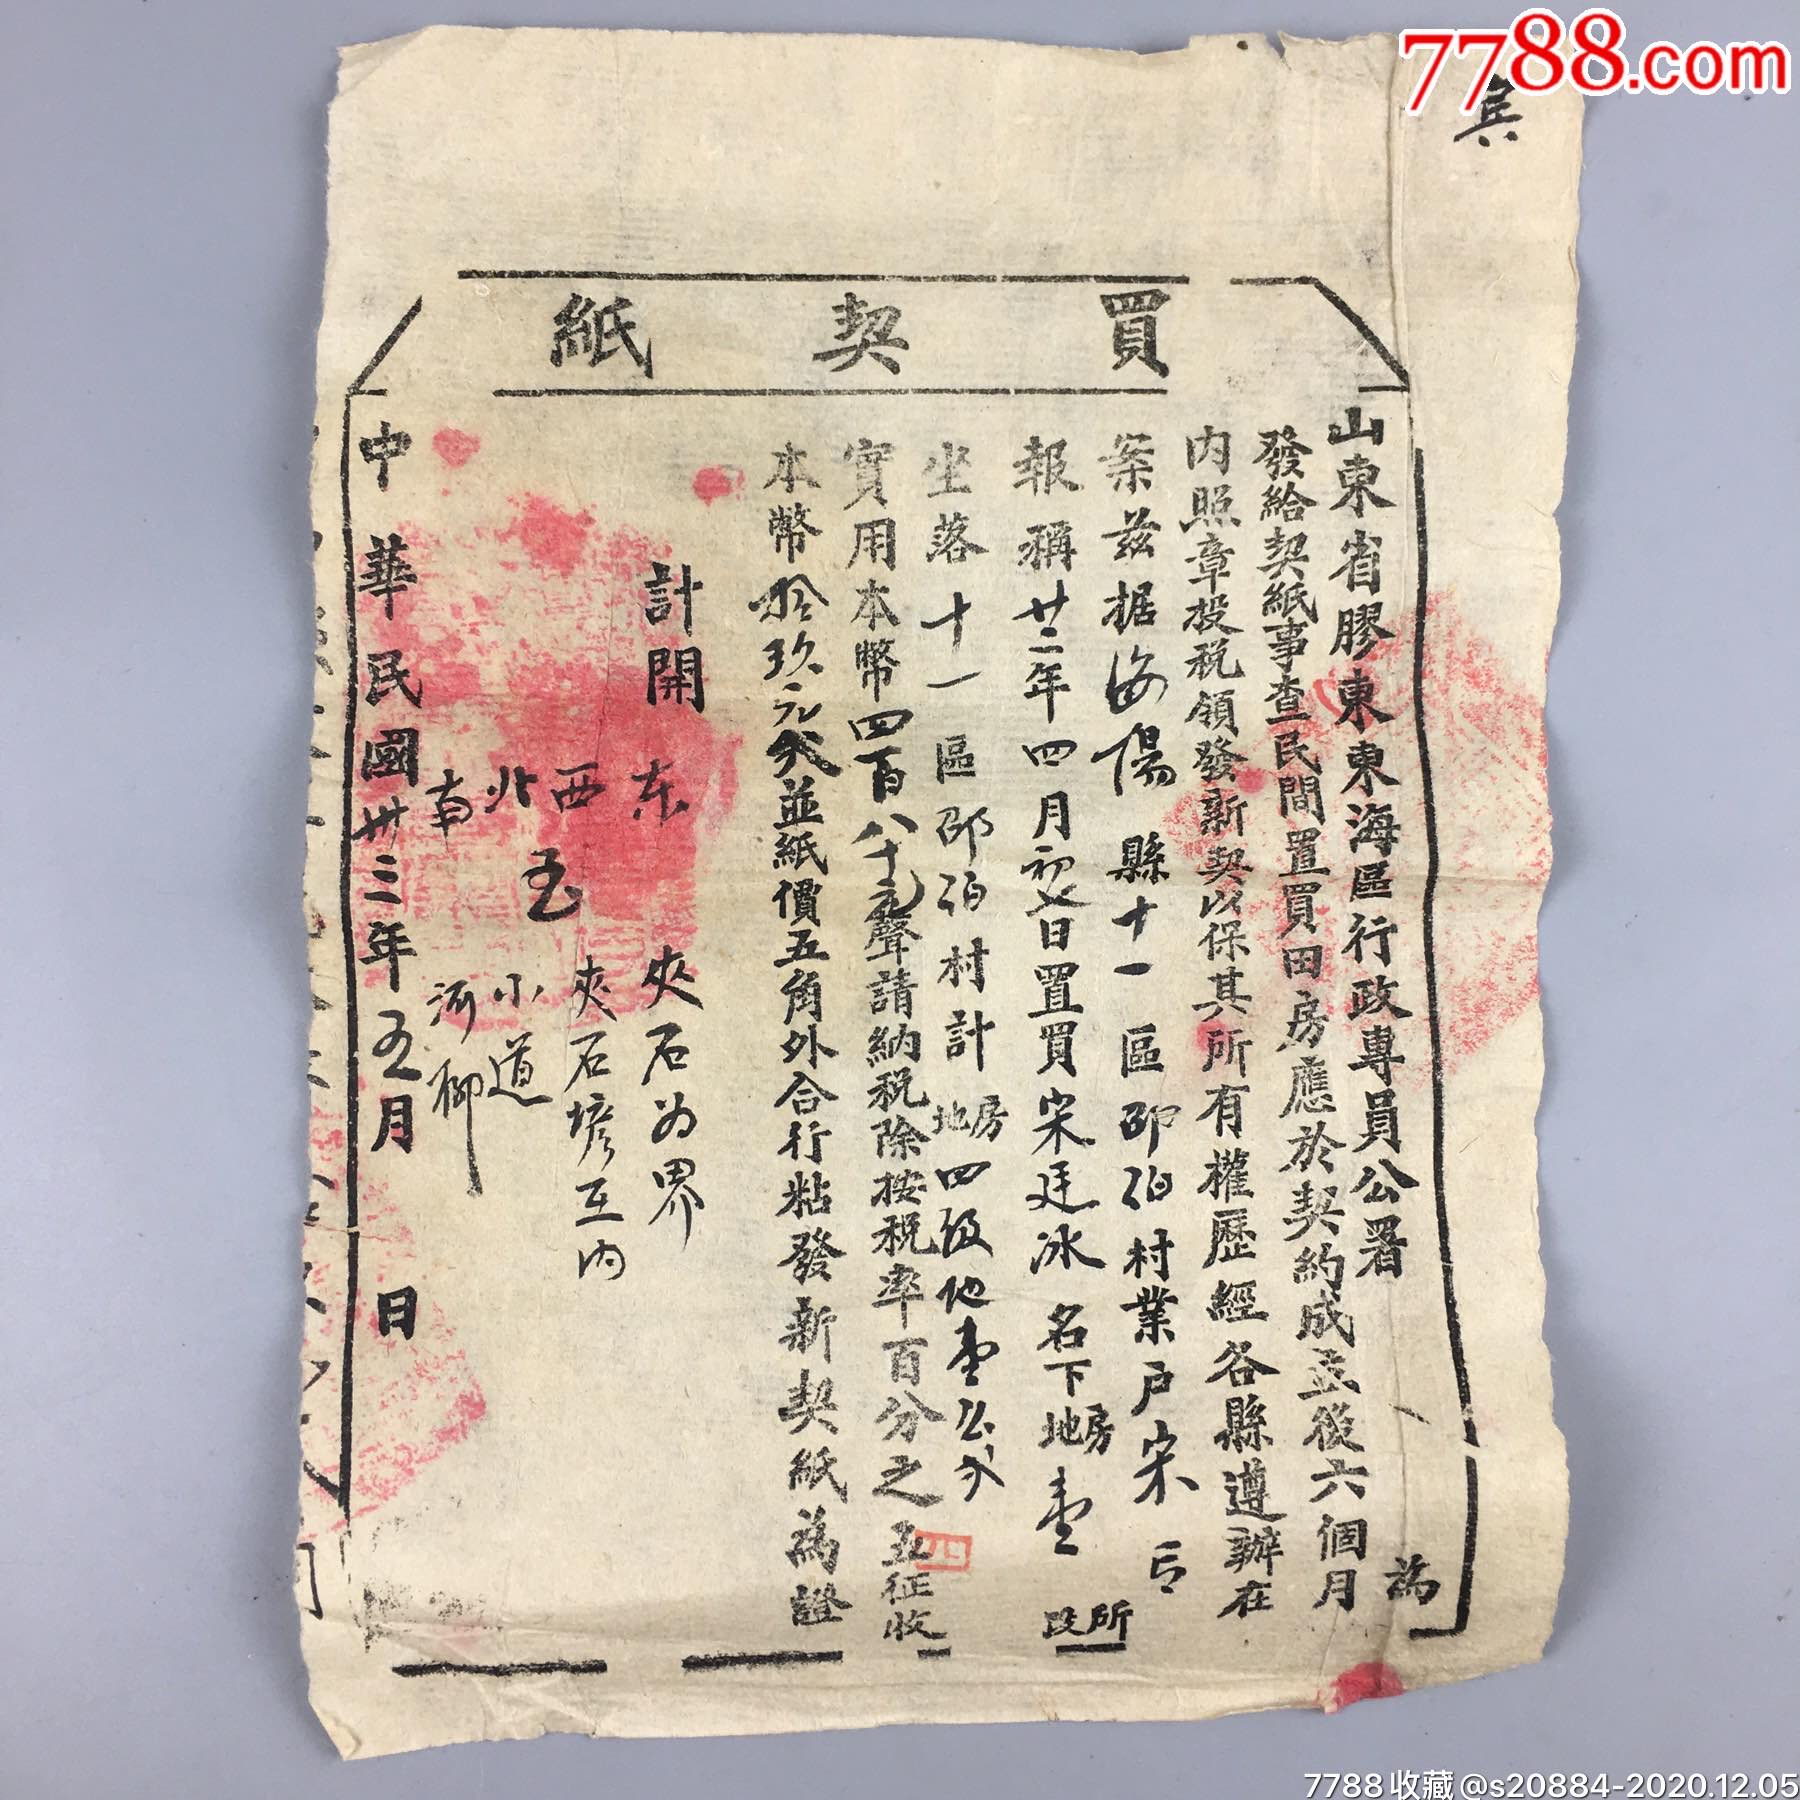 7788.com
買契紙
山東省膠東東海區行政專員公署 為
發給契紙事查民間置買田房應於契約成立後六個月
内照章投税領發新契以保其所有權歷經各縣遵辦在
案兹据海陽縣十一區邵伯村業户宋
報稱廿二年四月初七日置買宋廷冰名下房地壹所段
坐落十一區邵伯村計房地四段地壹公分
實用本幣四百八十元聲請納税除按税率百分之五征收
本幣拾玖元並紙價五角外合行粘發新契紙為證
計開
东 夾石為界
西 夾石 互内
至
北 小道
南 河柳
中華民國卅三年五月 日
四
7788收藏@s20884-2020.12.05